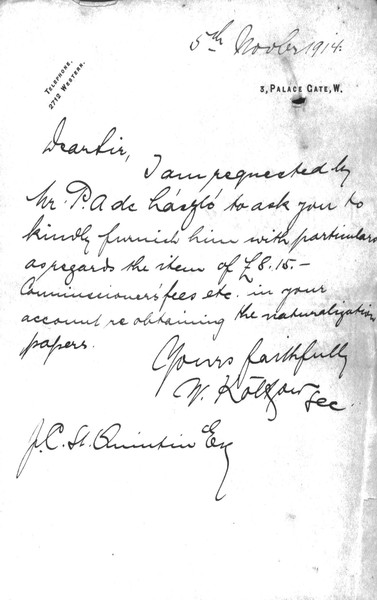 5th Novbr 1914.
TELEPHONE.
2712 WESTERN.
3, PALACE GATE, W.
Dear Sir,
I am requested by
Mr. P. A de László to ask you to
kindly furnish him with particulars
as regards the item of £8.15.–
Commissioners' fees etc. in your
account re obtaining the naturalization
papers.
Yours faithfully
W.
Sec.
J. C. St. Quintin Esq